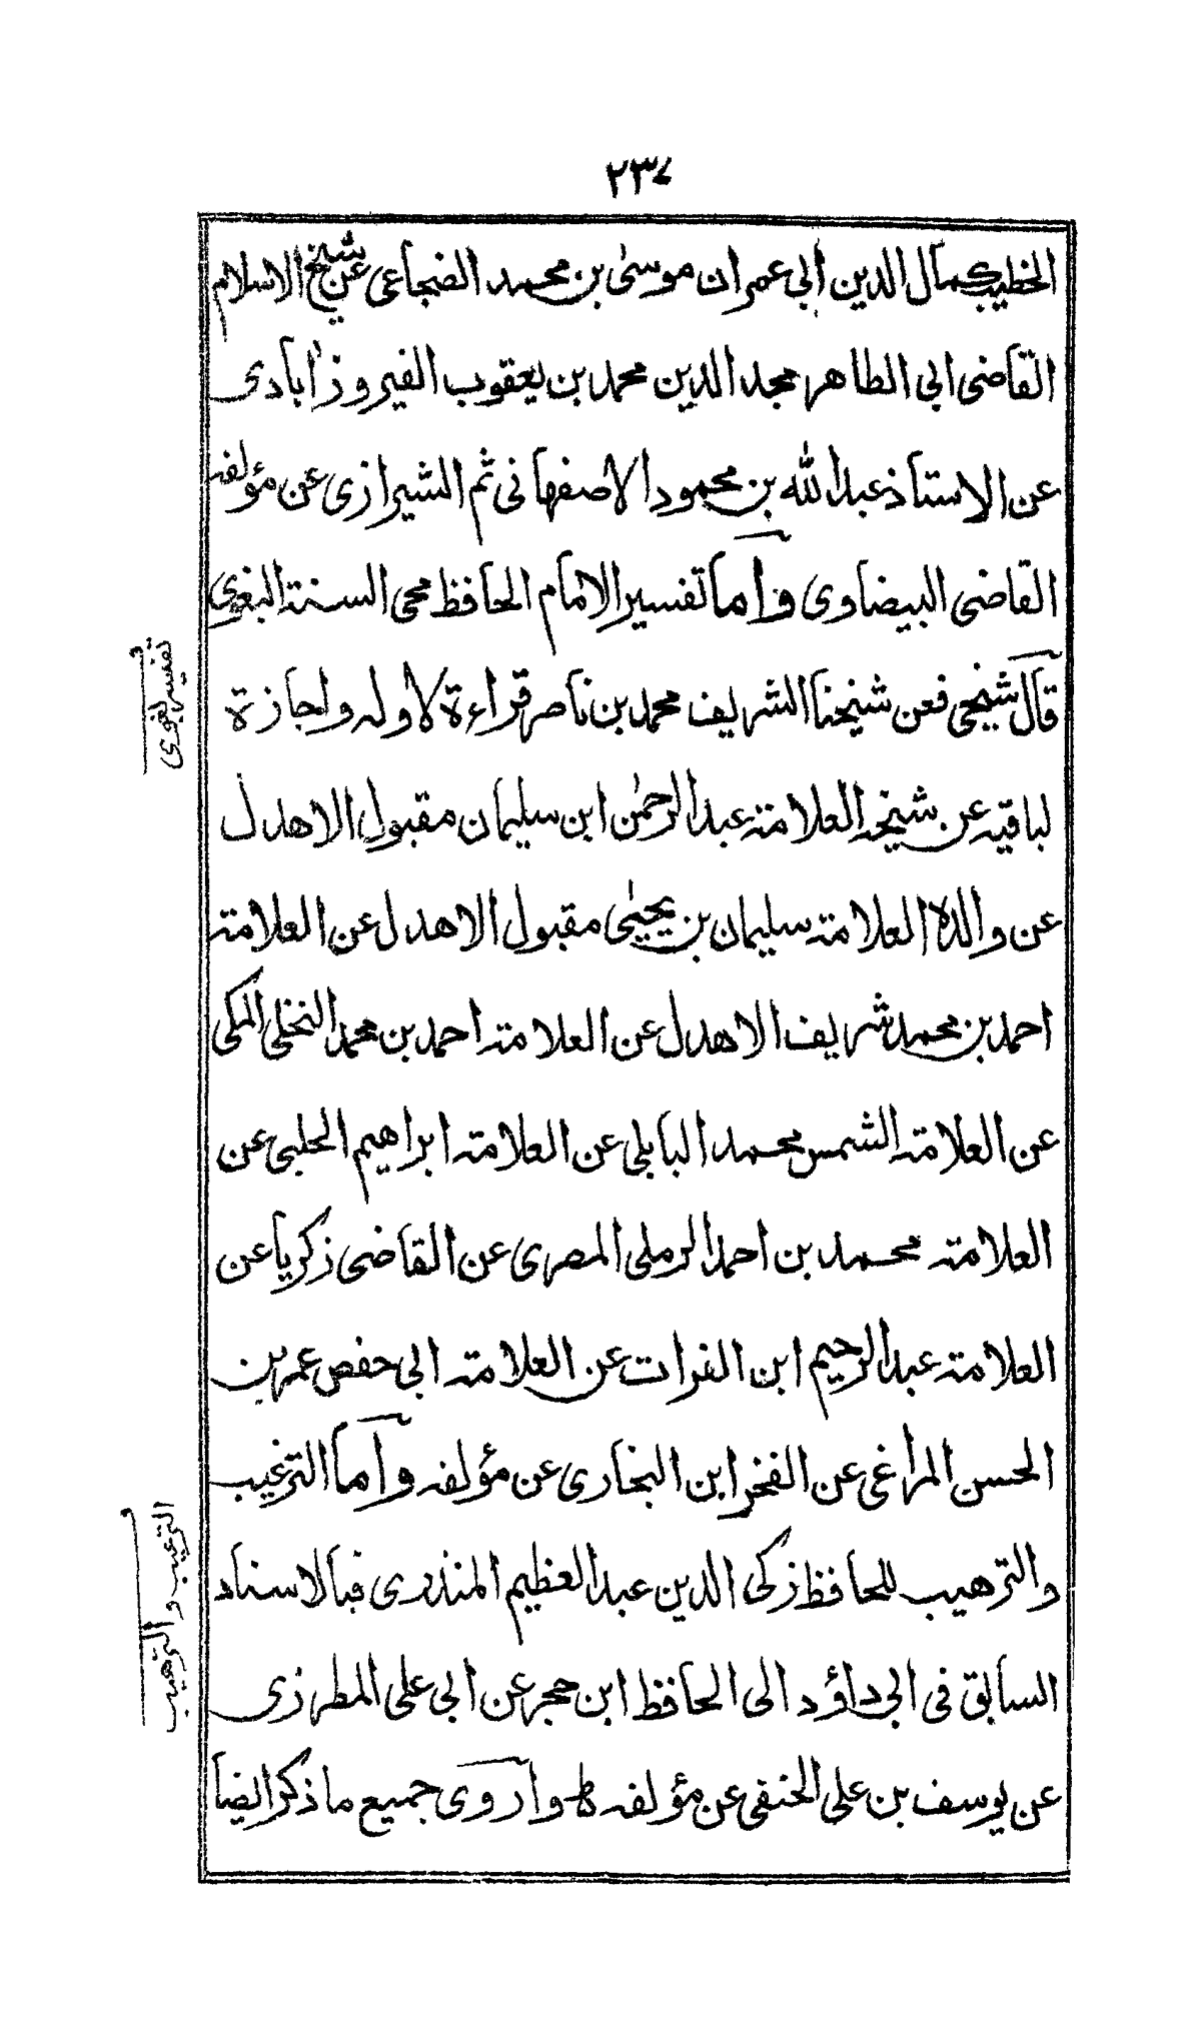 ٢٣٧
الخطيب كمال الدين أبي عمران موسىٰ بن محمد الضجاعى عن شيخ الاسلام
القاضى ابى الطاهر مجد الدين محمد بن يعقوب الفيروزاٰبادى
عن الاستاذ عبد الله بن محمود الاصفهانى ثم الشيرازى عن مؤلفه
القاضى البيضاوى وأما تفسير الامام الحافظ محى السنة البغوي
قال شيخى فعن شيخنا الشريف محمد بن ناصر قراءة لاوله واجازة
لباقيه عن شيخه العلامة عبد الرحمٰن ابن سليمان مقبول الاهدل
عن والده العلامة سليمان بن يحيىٰ مقبول الاهدل عن العلامة
احمد بن محمد شريف الاهدل عن العلامة احمد بن محمد النخلى المكى
عن العلامة الشمس محمد البابلى عن العلامة ابراهيم الحلبى عن
العلامة محمد بن احمد الرملى المصرى عن القاضى زكريا عن
العلامة عبد الرحيم ابن الفرات عن العلامة ابى حفص عمر بن
الحسن المراغى عن الفخر ابن البخارى عن مؤلفه وأما الترغيب
والترهيب للحافظ زكى الدين عبد العظيم المنذرى فبالاسناد
السابق فى ابى داؤد الى الحافظ ابن حجر عن ابى على المطرزى
عن يوسف بن على الحنفى عن مؤلفه ط وأروى جميع ما ذكر ايضا
تفسير لغوى
الترغيب و الترهيب